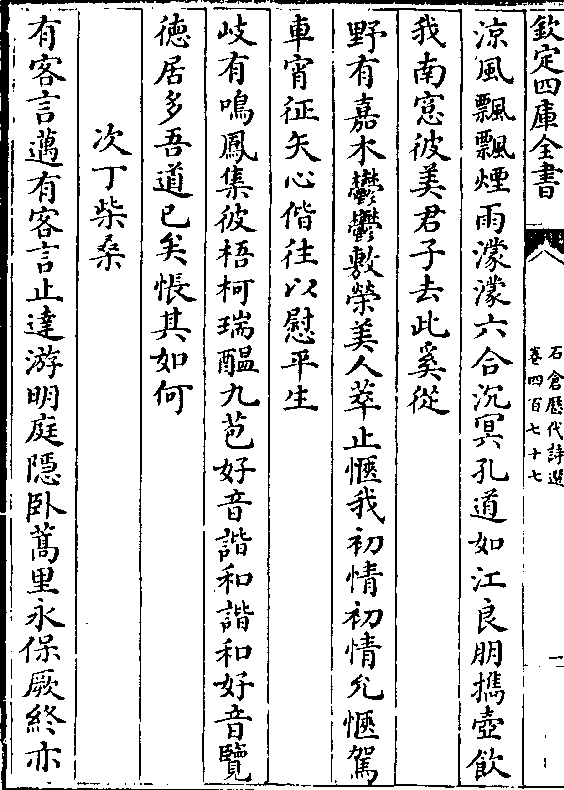 欽定四庫全書
石倉歷代詩選
卷四百七十七
一
涼風飄飄煙雨濛濛六合沉冥孔道如江良朋攜壺飲
我南窓彼美君子去此奚從
野有嘉木鬱鬱敷榮美人萃止愜我初情初情允愜駕
車宵征矢心偕往以慰平生
岐有鳴鳳集彼梧柯瑞醖九苞好音諧和諧和好音覽
徳居多吾道已矣悵其如何
次丁柴桑
有客言邁有客言止達游明庭隠卧蒿里永保厥終亦